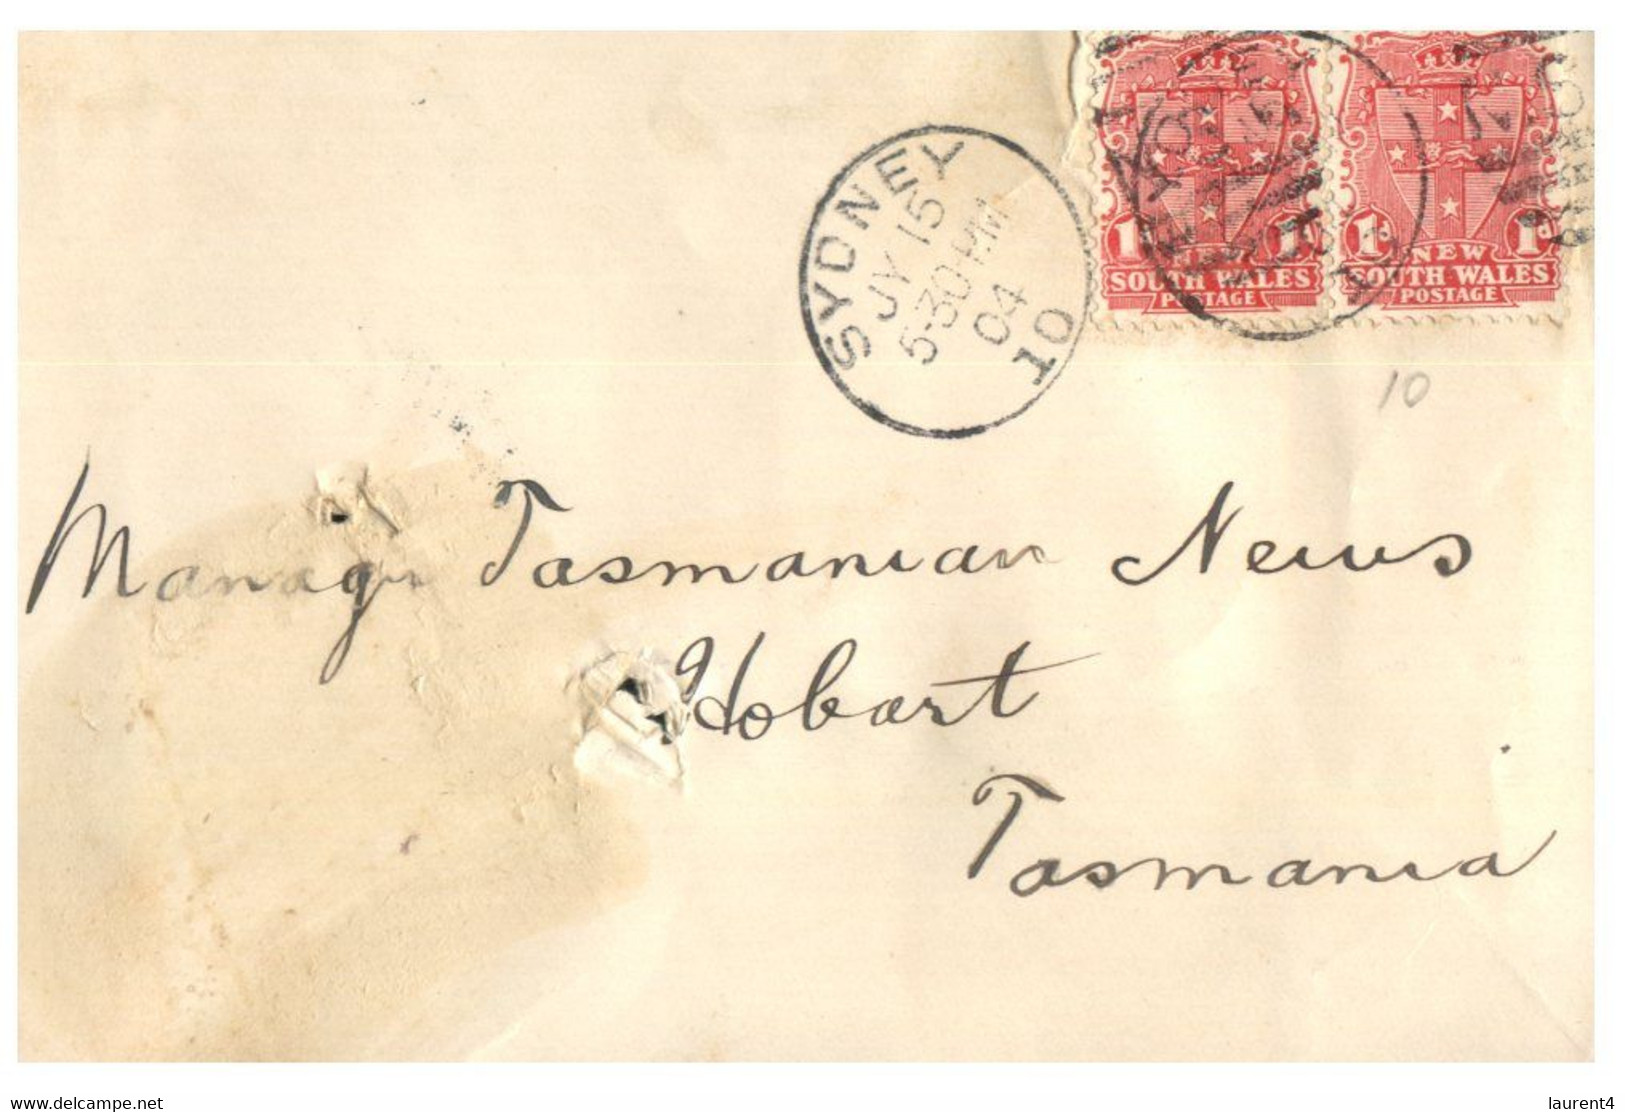 SYDNEY
JY 15
5-30 PM
04
10
1 1
NEW
SOUTH WALES
POSTAGE
1d 1d
NEW
SOUTH WALES
POSTAGE
10
Manager Tasmanian News
Hobart
Tasmania
www.delcampe.net
laurent4